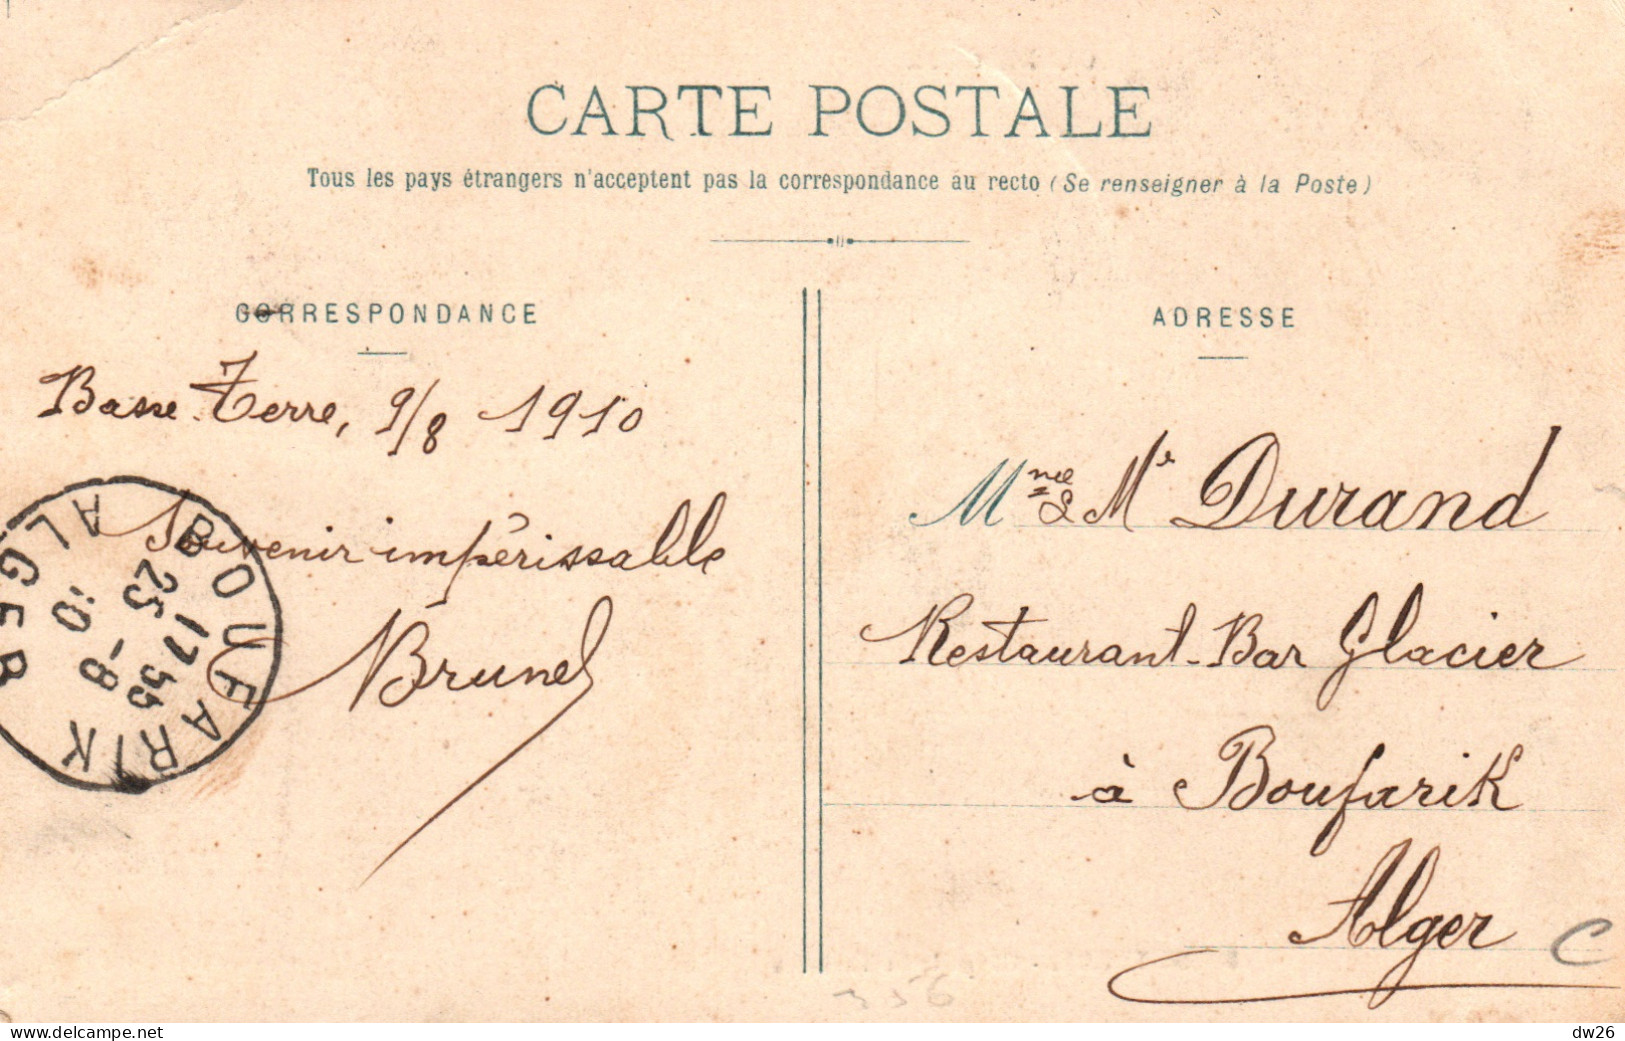 CARTE POSTALE
Tous les pays étrangers n'acceptent pas la correspondance au recto (Se renseigner à la Poste)
CORRESPONDANCE
Basse-Terre, 9/8 1910
Souvenir impérissable
Brunel
BOUFARIK
17 55
25 -8
10
ALGER
ADRESSE
Mme & Mr Durand
Restaurant-Bar Glacier
à Boufarik
Alger
C
356
dw26